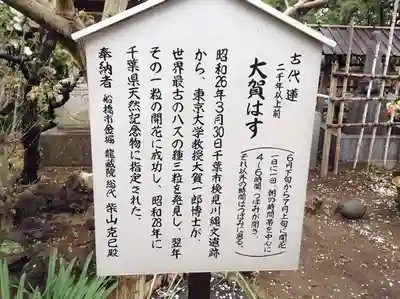 古代蓮
二千年以上前
大賀はす
六月下旬から7月上旬に開花
一日に一回、朝の時間帯を中心に
4〜6時間、つぼみが開き、
それ以外の時間はつぼみに戻る。
昭和26年3月30日千葉市検見川縄文遺跡
から、東京大学教授大賀一郎博士が、
世界最古のハスの種三粒を発見し、翌年
その一粒の開花に成功し、昭和28年に
千葉県天然記念物に指定された。
奉納者 船橋市金堀 龍蔵院 総代 柴山克巳殿